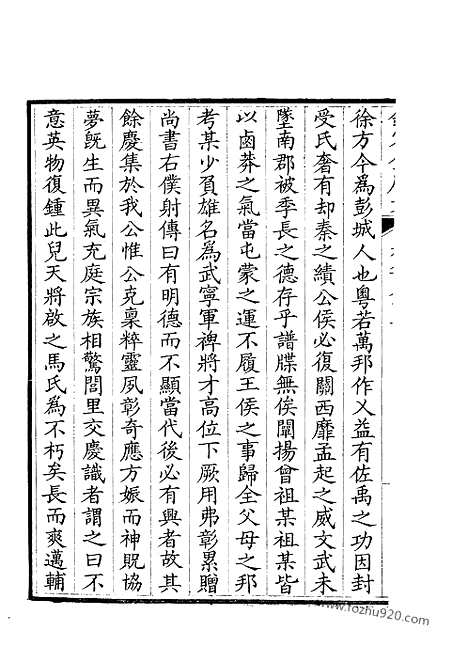 徐方今爲彭城人也粤若萬邦作乂益有佐禹之功因封
受氏奢有却秦之績公侯必復關西靡孟起之威文武未
墜南郡被季長之德存乎譜牒無俟闡揚曾祖某祖某皆
以鹵莽之氣當屯蒙之運不履王侯之事歸全父母之邦
考某少負雄名爲武寧軍禆將才高位下厥用弗彰累贈
尚書右僕射傳曰有明德而不顯當代後必有興者故其
餘慶集於我公惟公克稟粹靈夙彰奇應方娠而神貺協
夢旣生而異氣充庭宗族相驚閭里交慶識者謂之曰不
意英物復鍾此兒天將啟之馬氏爲不朽矣長而爽邁輔
www.fozhu920.com